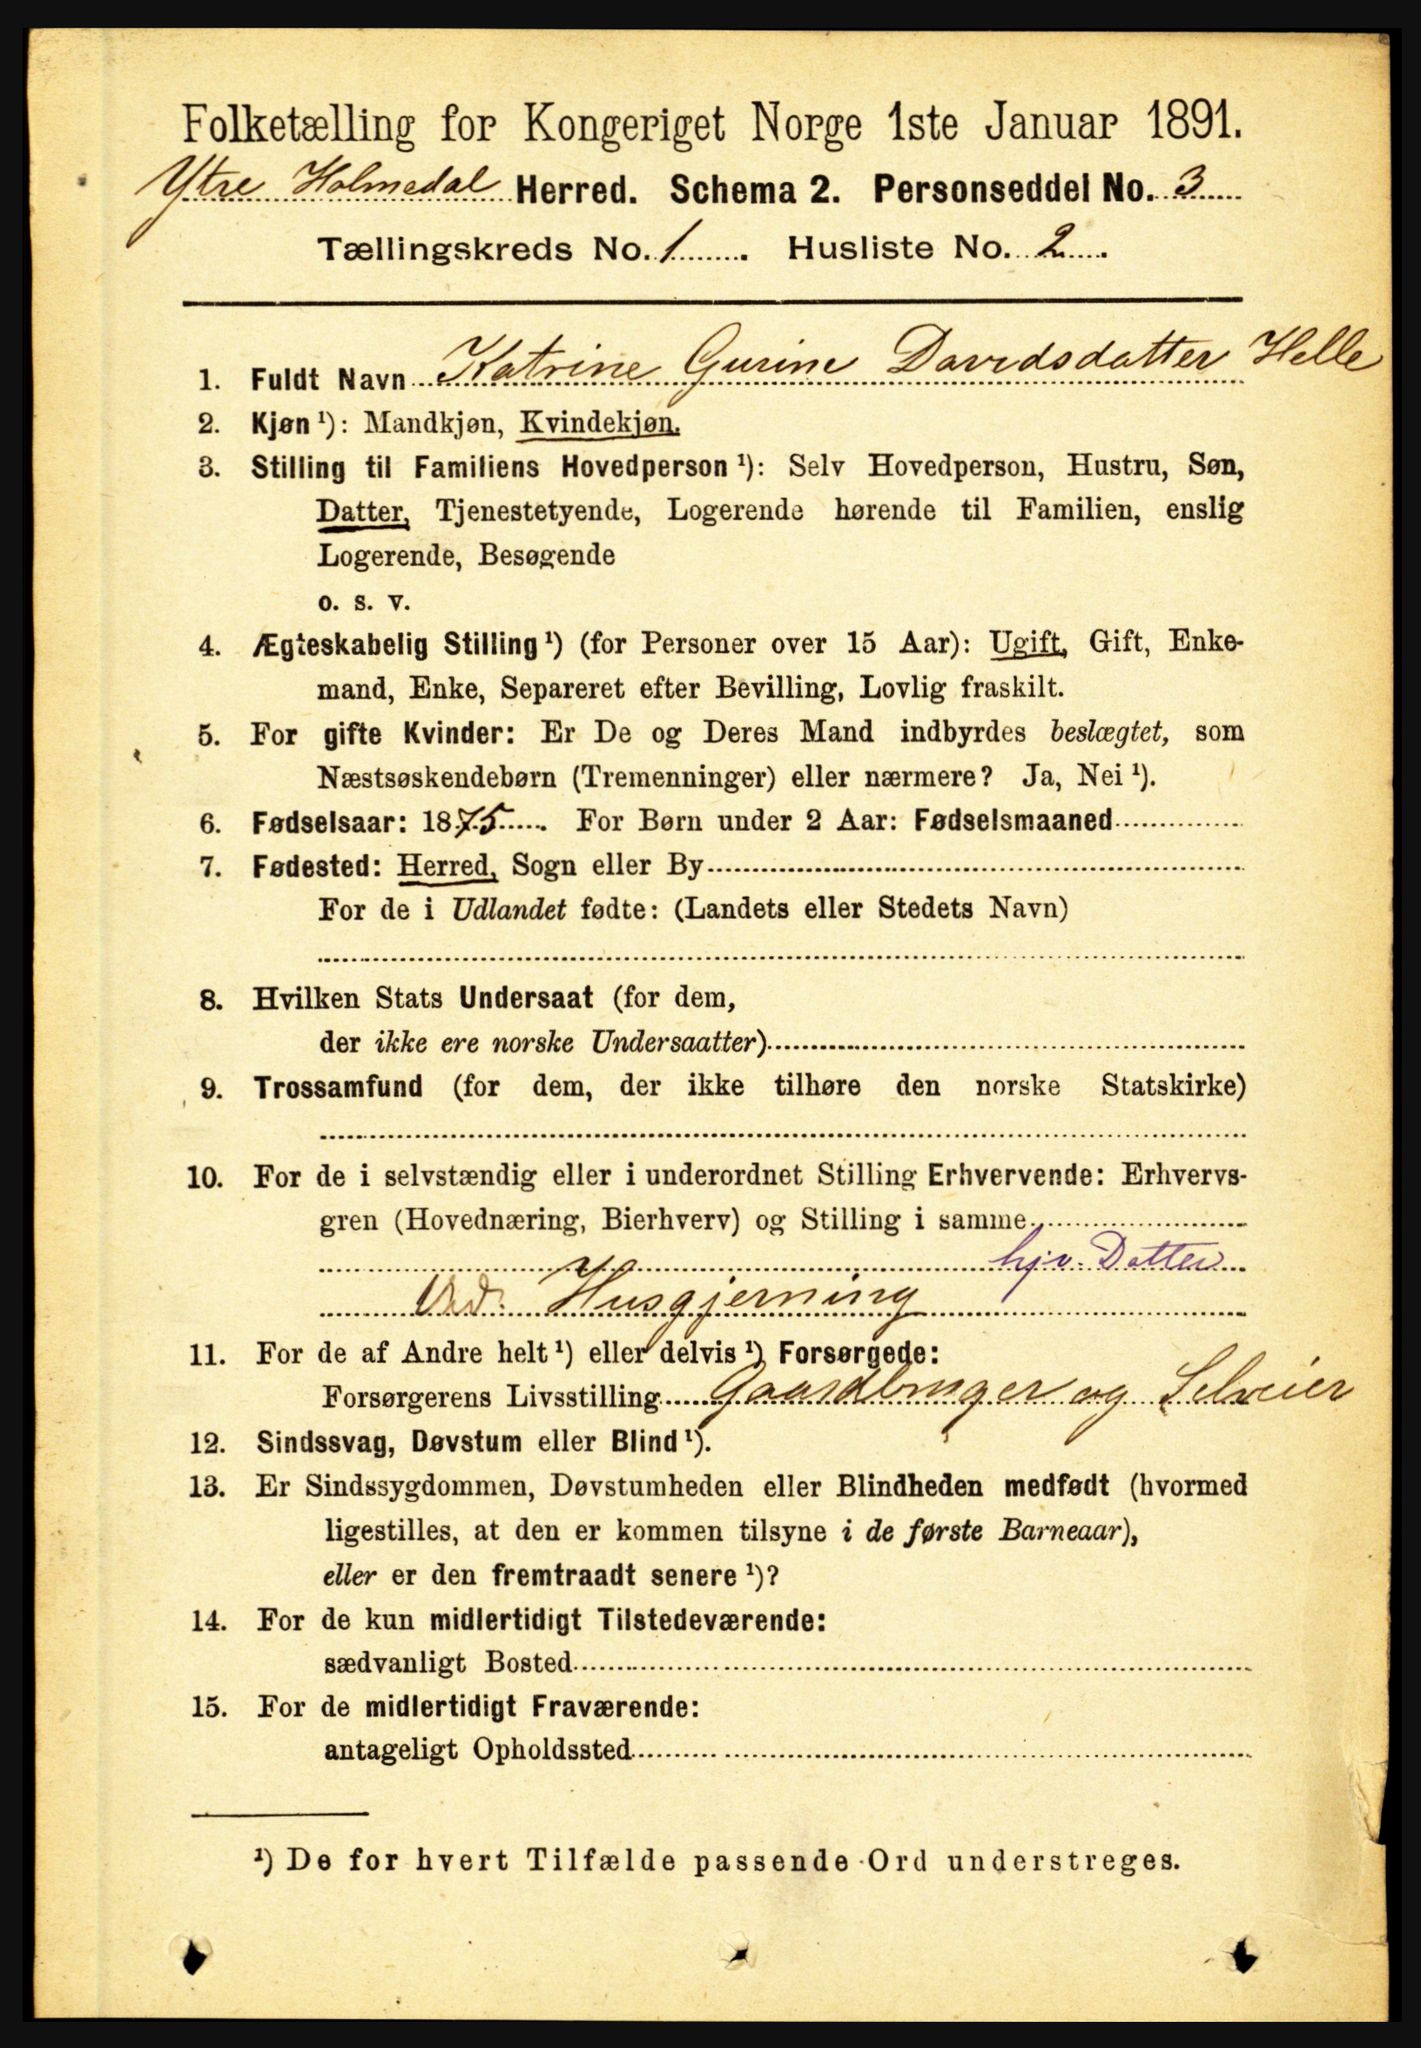 Folketælling for Kongeriget Norge 1ste Januar 1891.
Ytre Holmedal Herred. Schema 2. Personseddel No. 3
Tællingskreds No. 1. Husliste No. 2.
1. Fuldt Navn Katrine Gurine Davidsdatter Helle
2. Kjøn ¹): Mandkjøn, Kvindekjøn.
3. Stilling til Familiens Hovedperson ¹): Selv Hovedperson, Hustru, Søn,
Datter, Tjenestetyende, Logerende hørende til Familien, enslig
Logerende, Besøgende
o. s. v.
4. Ægteskabelig Stilling ¹) (for Personer over 15 Aar): Ugift, Gift, Enke-
mand, Enke, Separeret efter Bevilling, Lovlig fraskilt.
5. For gifte Kvinder: Er De og Deres Mand indbyrdes beslægtet, som
Næstsøskendebørn (Tremenninger) eller nærmere? Ja, Nei ¹).
6. Fødselsaar: 1875. For Børn under 2 Aar: Fødselsmaaned
7. Fødested: Herred, Sogn eller By
For de i Udlandet fødte: (Landets eller Stedets Navn)
8. Hvilken Stats Undersaat (for dem,
der ikke ere norske Undersaatter)
9. Trossamfund (for dem, der ikke tilhøre den norske Statskirke)
10. For de i selvstændig eller i underordnet Stilling Erhvervende: Erhvervs-
gren (Hovednæring, Bierhverv) og Stilling i samme
hjv. Datter
Ved. Husgjerning
11. For de af Andre helt ¹) eller delvis ¹) Forsørgede:
Forsørgerens Livsstilling Gaardbruger og Selveier
12. Sindssvag, Døvstum eller Blind ¹).
13. Er Sindssygdommen, Døvstumheden eller Blindheden medfødt (hvormed
ligestilles, at den er kommen tilsyne i de første Barneaar),
eller er den fremtraadt senere ¹)?
14. For de kun midlertidigt Tilstedeværende:
sædvanligt Bosted
15. For de midlertidigt Fraværende:
antageligt Opholdssted
¹) De for hvert Tilfælde passende Ord understreges.